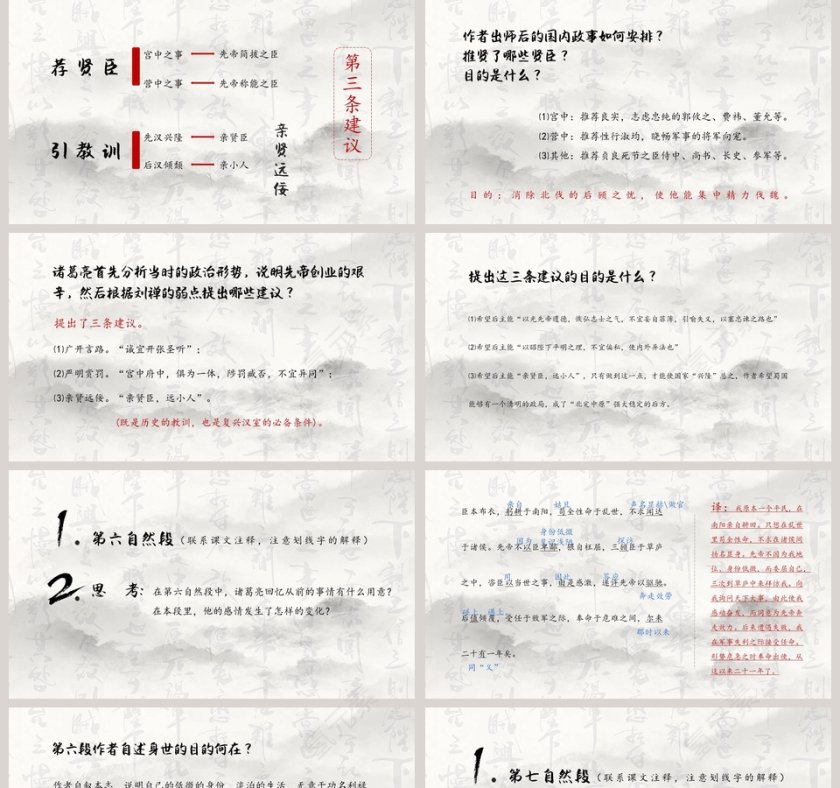 荐贤臣
宫中之事
先帝简拔之臣
营中之事
先帝称能之臣
引教训
先汉兴隆
亲贤臣
后汉倾颓
亲小人
亲贤远佞
第三条建议
作者出师后的国内政事如何安排？
推贤了哪些贤臣？
目的是什么？
(1)宫中：推荐良实，志虑忠纯的郭攸之、费祎、董允等。
(2)营中：推荐性行淑均，晓畅军事的将军向宠。
(3)其他：推荐贞良死节之臣侍中、尚书、长史、参军等。
目的：消除北伐的后顾之忧，使他能集中精力伐魏。
诸葛亮首先分析当时的政治形势，说明先帝创业的艰
辛，然后根据刘禅的弱点提出哪些建议？
提出了三条建议。
(1)广开言路。“诚宜开张圣听”；
(2)严明赏罚。“宫中府中，俱为一体，陟罚臧否，不宜异同”；
(3)亲贤远佞。“亲贤臣，远小人”。
(既是历史的教训，也是复兴汉室的必备条件)。
提出这三条建议的目的是什么？
(1)希望后主能“以光先帝遗德，恢弘志士之气，不宜妄自菲薄，引喻失义，以塞忠谏之路也”
(2)希望后主能“以昭陛下平明之理，不宜偏私，使内外异法也”
(3)希望后主能“亲贤臣，远小人”，只有做到这一点，才能使国家“兴隆”总之，作者希望蜀国
能够有一个清明的政局，成了“北定中原”强大稳定的后方。
1.第六自然段(联系课文注释，注意划线字的解释)
2.思 考：在第六自然段中，诸葛亮回忆从前的事情有什么用意？
在本段里，他的感情发生了怎样的变化？
亲自 姑且 声名显赫\做官
臣本布衣，躬耕于南阳，苟全性命于乱世，不求闻达
身份低微
因为 见识浅陋 探访
于诸侯。先帝不以臣卑鄙，猥自枉屈，三顾臣于草庐
之中，咨臣以当世之事，由是感激，遂许先帝以驱驰。
奔走效劳
后值倾覆，受任于败军之际，奉命于危难之间，尔来
那时以来
二十有一年矣。
同“又”
译：我原本一个平民，在
南阳亲自耕田。只想在乱世
里苟全性命，不求在诸侯间
扬名显身。先帝不因为我地
位、身份低微，而委屈自己，
三次到草庐中来拜访我，向
我询问天下大事，由此使我
感动奋发，而同意为先帝奔
走效力。后来遭遇失败，我
在军事失利之际接受任命，
形势危急之时奉命出使，从
这以来二十一年了。
第六段作者自述身世的目的何在？
作者自叙本志，说明自己的低微的身份，淡泊的生活，无意于功名利禄
1.第七自然段(联系课文注释，注意划线字的解释)